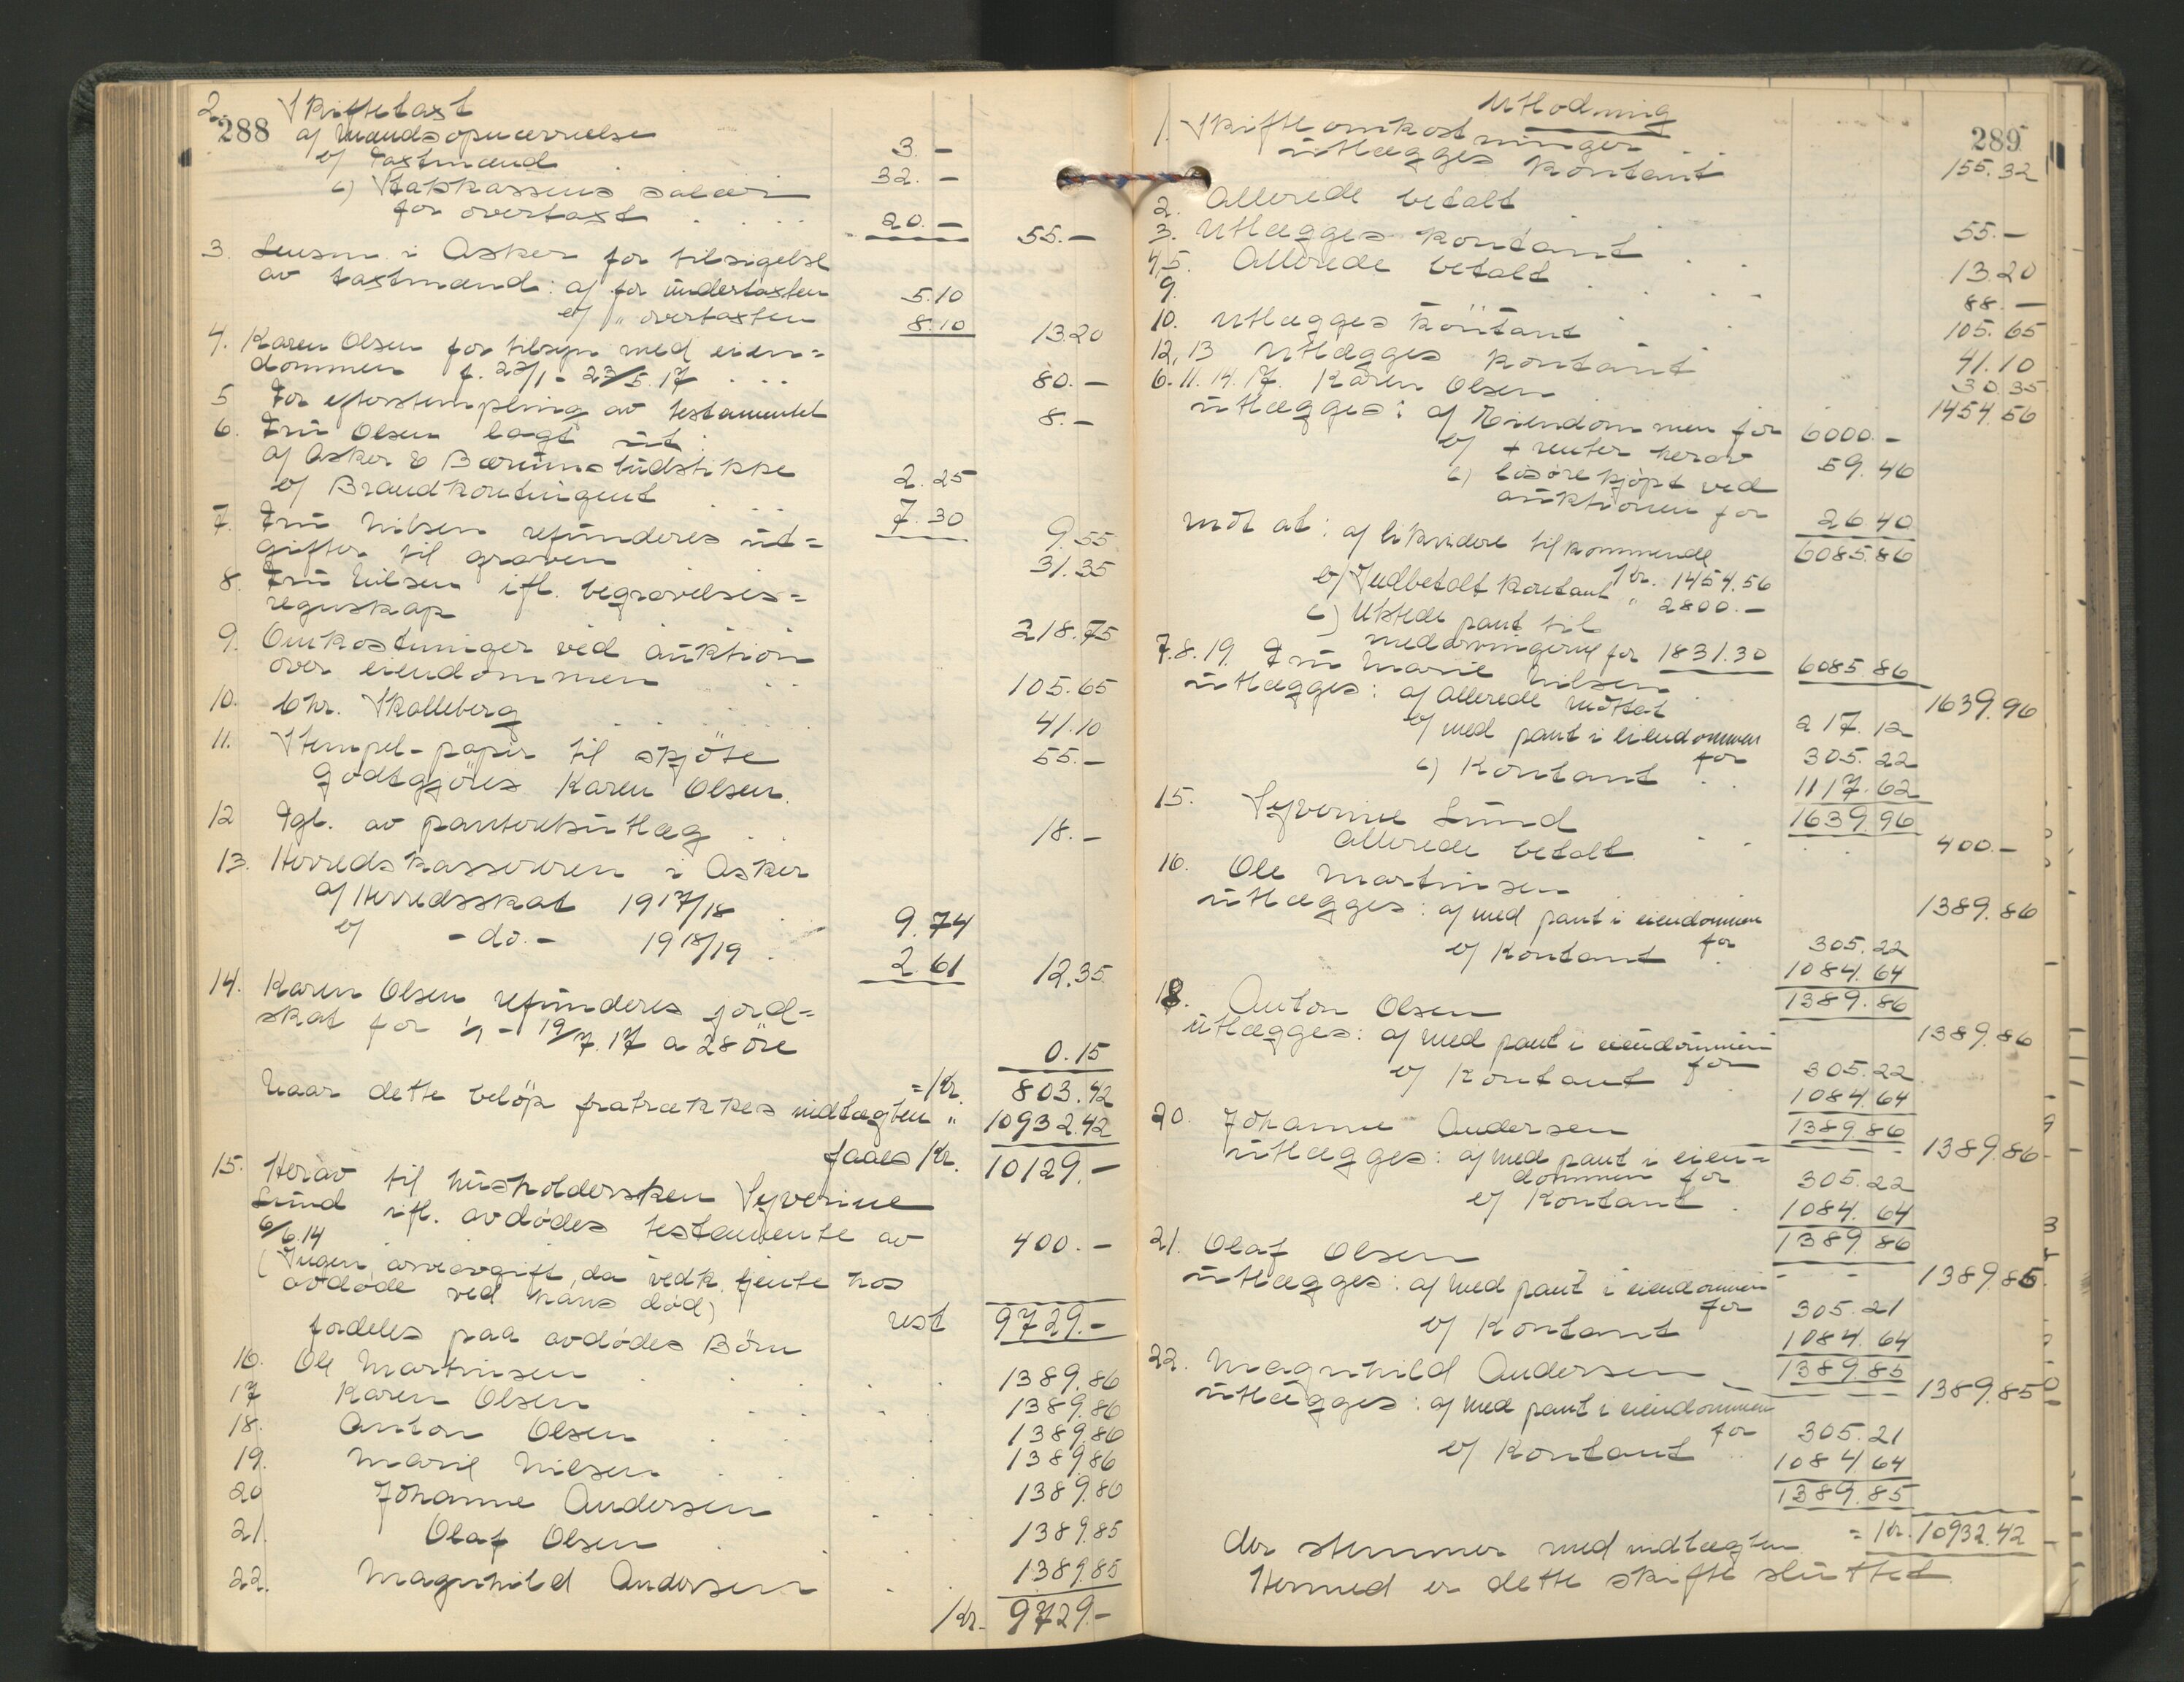 288
2. Skiftetaxt
a) Mændsopnævnelse 3.-
b) Taxtmænd 32.-
c) Statskassens salær
for overtaxt 20.- 55.-
3. Lensm. i Asker for tilsigelse
av taxtmænd: a) for undertaxten 5.10
b) " overtaxten 8.10 13.20
4. Karen Olsen for tilsyn med eien=
dommen f. 23/1 - 23/5.17 80.-
5 For efterstempling av testamentet 8.-
6. Fru Olsen lagt ut
a) Asker & Bærums Budstikke 2.25
b) Brandkontingent 7.30 9.55
7. Fru Nilsen refunderes ut=
gifter til graven 31.35
8. Fru Nilsen ifl. begravelses=
regnskap 218.75
9. Omkostninger ved auktion
over eiendommen 105.65
10. Chr. Skalleberg 41.10
11. Stempel-papir til skjöte 55.-
Godtgjöres Karen Olsen.
12 Tgl. av panteretsutlæg 18.-
13. Herredskassereren i Asker
a) Herredsskat 1917/18 9.74
b) - do. - 1918/19 2.61 12.35
14. Karen Olsen refunderes jord=
skat for 1/1 - 19/7.17 a 28 öre 0.15
= Kr. 803.42
Naar dette belöp fratrækkes indtægten " 10932.42
faaes Kr. 10129.-
15. Herav til husholdersken Syverine
Lund ifl. avdödes testamente av
6/6.14 400.-
(Ingen arveavgift, da vedk. tjente hos
avdöde ved hans död)
rest 9729.-
fordeles paa avdödes Börn
16. Ole Martinsen 1389.86
17 Karen Olsen 1389.86
18. Anton Olsen 1389.86
19. Marie Nilsen 1389.86
20 Johanne Andersen 1389.86
21. Olaf Olsen 1389.85
22. Magnhild Andersen 1389.85
Kr. 9729.-
289
Utlodning
1. Skifteomkostninger
utlægges kontant 155.32
2. Allerede betalt 55.-
3. Utlægges kontant 13.20
4,5. Allerede betalt 88.-
9. 105.65
10. Utlægges kontant 41.10
12,13 Utlægges kontant 30.35
6.11.14.17. Karen Olsen 1454.56
utlægges: a) Eiendommen for 6000.-
b) + renter herav 59.46
c) lösöre kjöpt ved
auktionen for 26.40
6085.86
mot at: a) likvidere tilkommende
Kr. 1454.56
b) Indbetalt kontant " 2800.-
c) Utstede pant til
medarvingerne for 1831.30 6085.86
7.8.19. Fru Marie Nilsen 1639.96
utlægges: a) allerede mottat 217.12
b) med pant i eiendommen
for 305.22
c) Kontant 1117.62
1639.96
15. Syverine Lund
allerede betalt 400.-
16. Ole Martinsen 1389.86
utlægges: a) med pant i eiendommen
for 305.22
b) Kontant 1084.64
1389.86
18. Anton Olsen 1389.86
utlægges: a) med pant i eiendommen
for 305.22
b) Kontant 1084.64
1389.86
20. Johanne Andersen 1389.86
utlægges: a) med pant i eien=
dommen for 305.22
b) Kontant 1084.64
1389.86
21. Olaf Olsen 1389.85
utlægges: a) med pant i eiendommen
for 305.21
b) Kontant 1084.64
1389.85
22. Magnhild Andersen 1389.85
utlægges: a) med pant i eiendommen
for 305.21
b) Kontant 1084.64
1389.85
= Kr. 10932.42
der stemmer med indtægten.
Hermed er dette skifte sluttet.